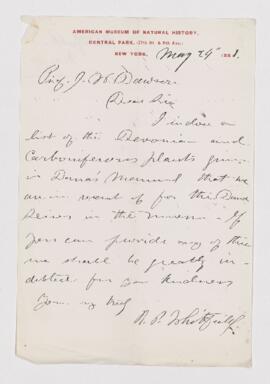 AMERICAN MUSEUM OF NATURAL HISTORY,
CENTRAL PARK, (77th St. & 8th Ave.)
NEW YORK, May 29" 1881.
Prof. J. W. Dawson
Dear Sir
I inclose a
list of the Devonian and
Carboniferous plants given
in Danas Manual that we
are in want of for the Dana
Series in the Museum. If
you can provide any of these
we shall be greatly in-
debted for your kindness
Yours very truly
R. P. Whitfield